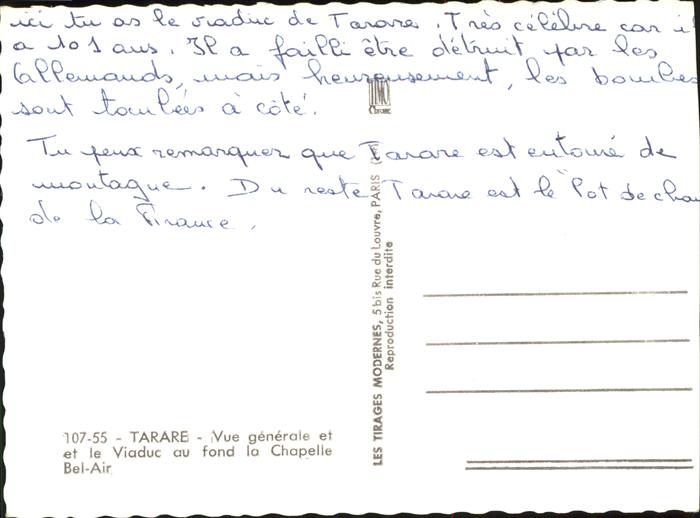 ici tu as le viaduc de Tarare. Très célèbre car i
a 101 ans. Il a failli être détruit par les
Allemands, mais heureusement, les bombes
sont tombées à côté.
Tu peux remarquer que Tarare est entouré de
montagne. Du reste Tarare est le "Pot de cha
de la France.
LES TIRAGES MODERNES, 5 bis Rue du Louvre, PARIS
Reproduction interdite
107-55 - TARARE - Vue générale et
et le Viaduc au fond la Chapelle
Bel-Air